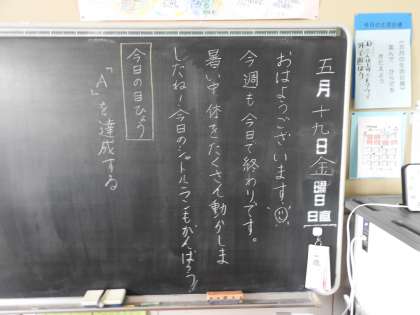 五月十九日金曜日
日直
おはようございます。
今週も今日で終わりです。
暑い中体をたくさん動かしま
したね！今日のシャトルランもがんばろう
今日の目ひょう
「A」を達成する
今月の生活目標